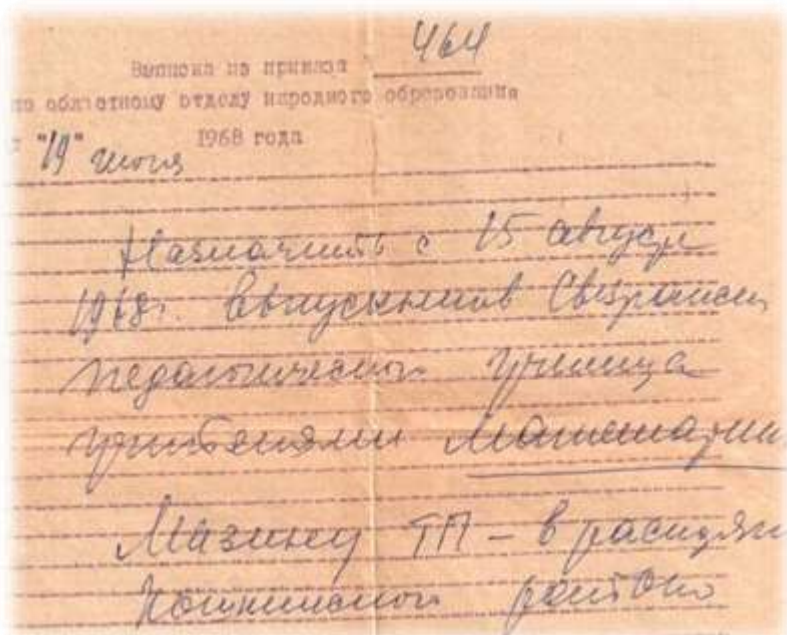 464
Выписка из приказа
по областному отделу народного образования
"19" июля 1968 года
Назначить с 15 августа
1968г. выпускников Сызранск
педагогического училища
учителями математики
Мазину ТП – в распоряж
Кошкинского районо